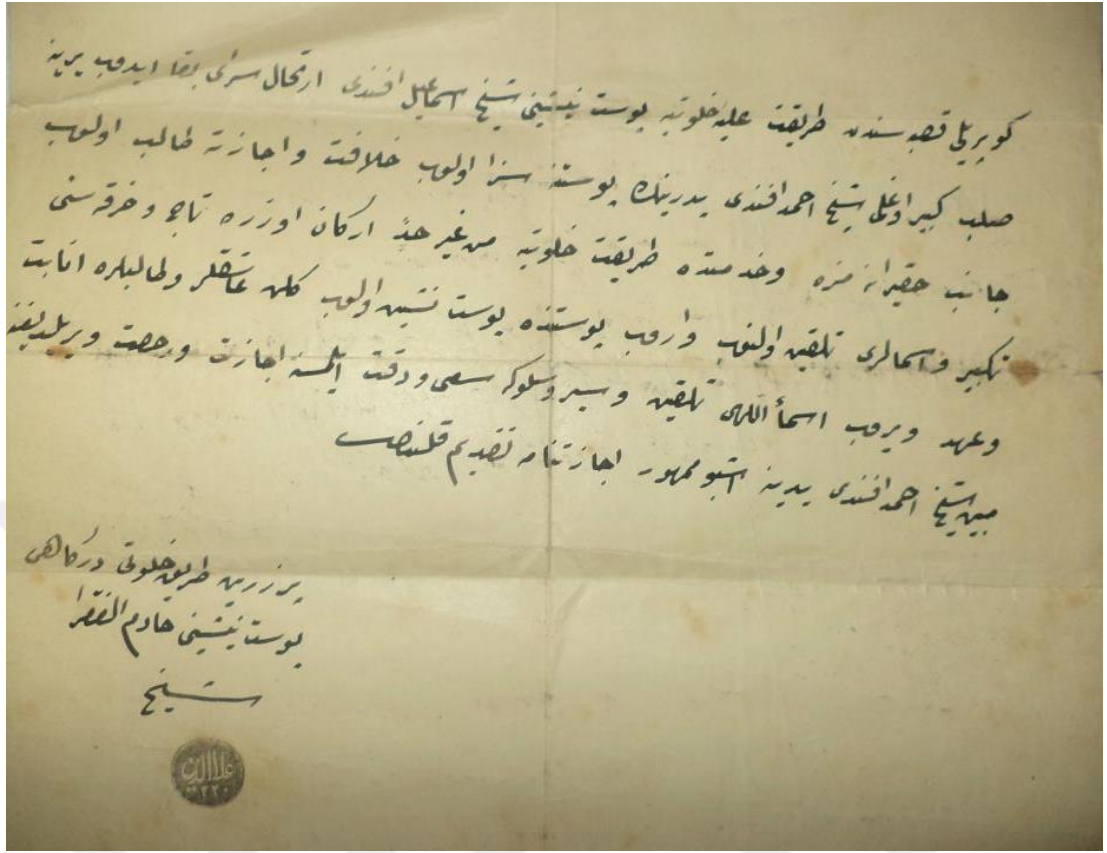 كوپريلى قصبه سندن طريقت عليه خلوتيه پوست نشينى شيخ اسماعيل افندى ارتحال سراى بقا ايدوب يرينه
صلب كبير اوغلى شيخ احمد افندى پدرينك پوستنه سزا اولوب خلافت واجازته طالب اولوب
جانب حقيرانه مزه وخدمتده طريقت خلوتيه من غير حد اركان اوزره تاج وخرقه سنى
تكبير واسمالرى تلقين اولنوب واروب پوستنده پوست نشين اولوب كلن عاشقلر وطالبلره انابت
وعهد ويروب اسمأ اللهى تلقين وسير وسلوكه سعى ودقت ايلمسنه اجازت ورخصت ويرلديكنه
مبين شيخ احمد افندى يدينه اشبو ممهور اجازتنامه تقديم قلنمشدر
پرزرين طريق خلوتى دركاهى
پوست نشينى خادم الفقرا
شيخ
علاالدين